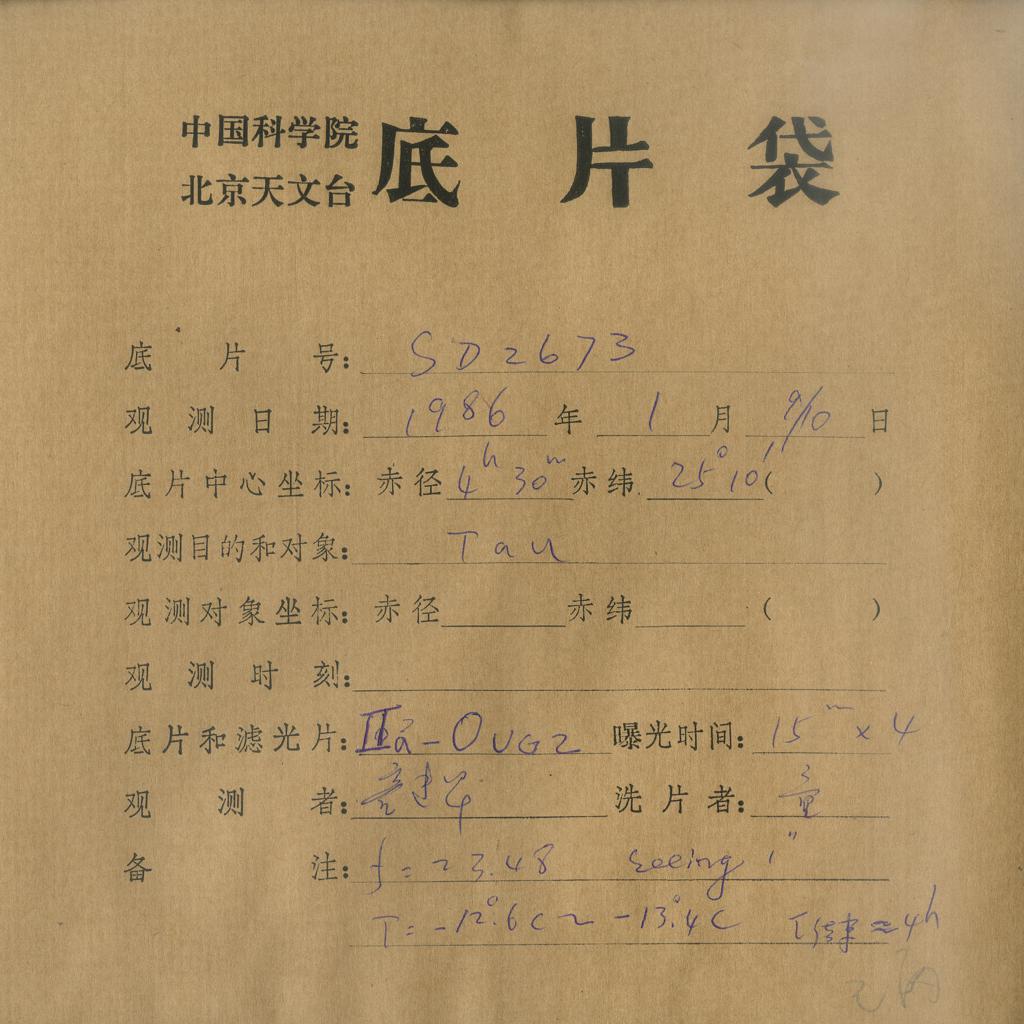 中国科学院
北京天文台
底片袋
底片号: SD2673
观测日期: 1986年 1月 9/10日
底片中心坐标: 赤径 4h 30m 赤纬 25°10′( )
观测目的和对象: Tau
观测对象坐标: 赤径 赤纬 ( )
观测时刻:
底片和滤光片: IIa-O UG2 曝光时间: 15m×4
观测者: 童建华 洗片者: 童
备注: f=23.48 seeing 1″
T=-12°.6C~-13°.4C T结束≈4h